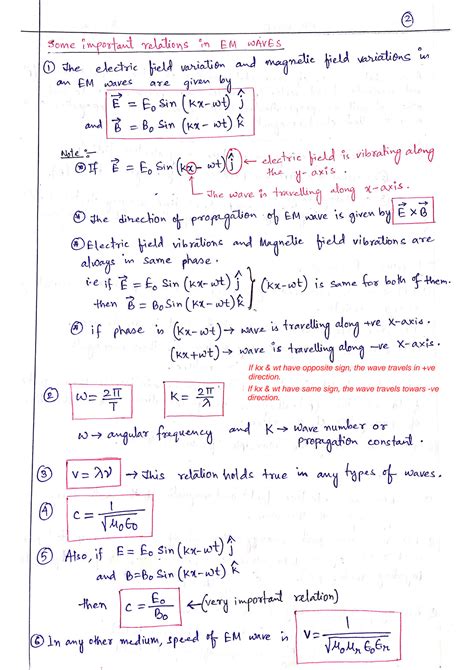 ②
Some important relations in EM WAVES
① The electric field variation and magnetic field variations in
an EM waves are given by
E⃗ = E₀ Sin (kx-ωt) ĵ
and B⃗ = B₀ Sin (kx-ωt) k̂
Note :-
If E⃗ = E₀ Sin (kx-ωt) ĵ ← electric field is vibrating along
the y-axis.
The wave is travelling along x-axis.
The direction of propagation of EM wave is given by E⃗ X B⃗
Electric field vibrations and Magnetic field vibrations are
always in same phase.
i.e if E⃗ = E₀ Sin (kx-ωt) ĵ
then B⃗ = B₀ Sin (kx-ωt) k̂ } (kx-ωt) is same for both of them.
if phase is (kx-ωt) → wave is travelling along +ve X-axis.
(kx+ωt) → wave is travelling along -ve X-axis.
If kx & wt have opposite sign, the wave travels in +ve
direction.
If kx & wt have same sign, the wave travels towars -ve
direction.
② ω = 2π/T K = 2π/λ
ω → angular frequency and K → wave number or
propagation constant.
③ v = λν → This relation holds true in any types of waves.
④ c = 1/√μ₀ε₀
⑤ Also, if E = E₀ Sin (kx-ωt) ĵ
and B = B₀ Sin (kx-ωt) k̂
then c = E₀/B₀ ← (very important relation)
⑥ In any other medium, speed of EM wave is v = 1/√μ₀μᵣ ε₀εᵣ